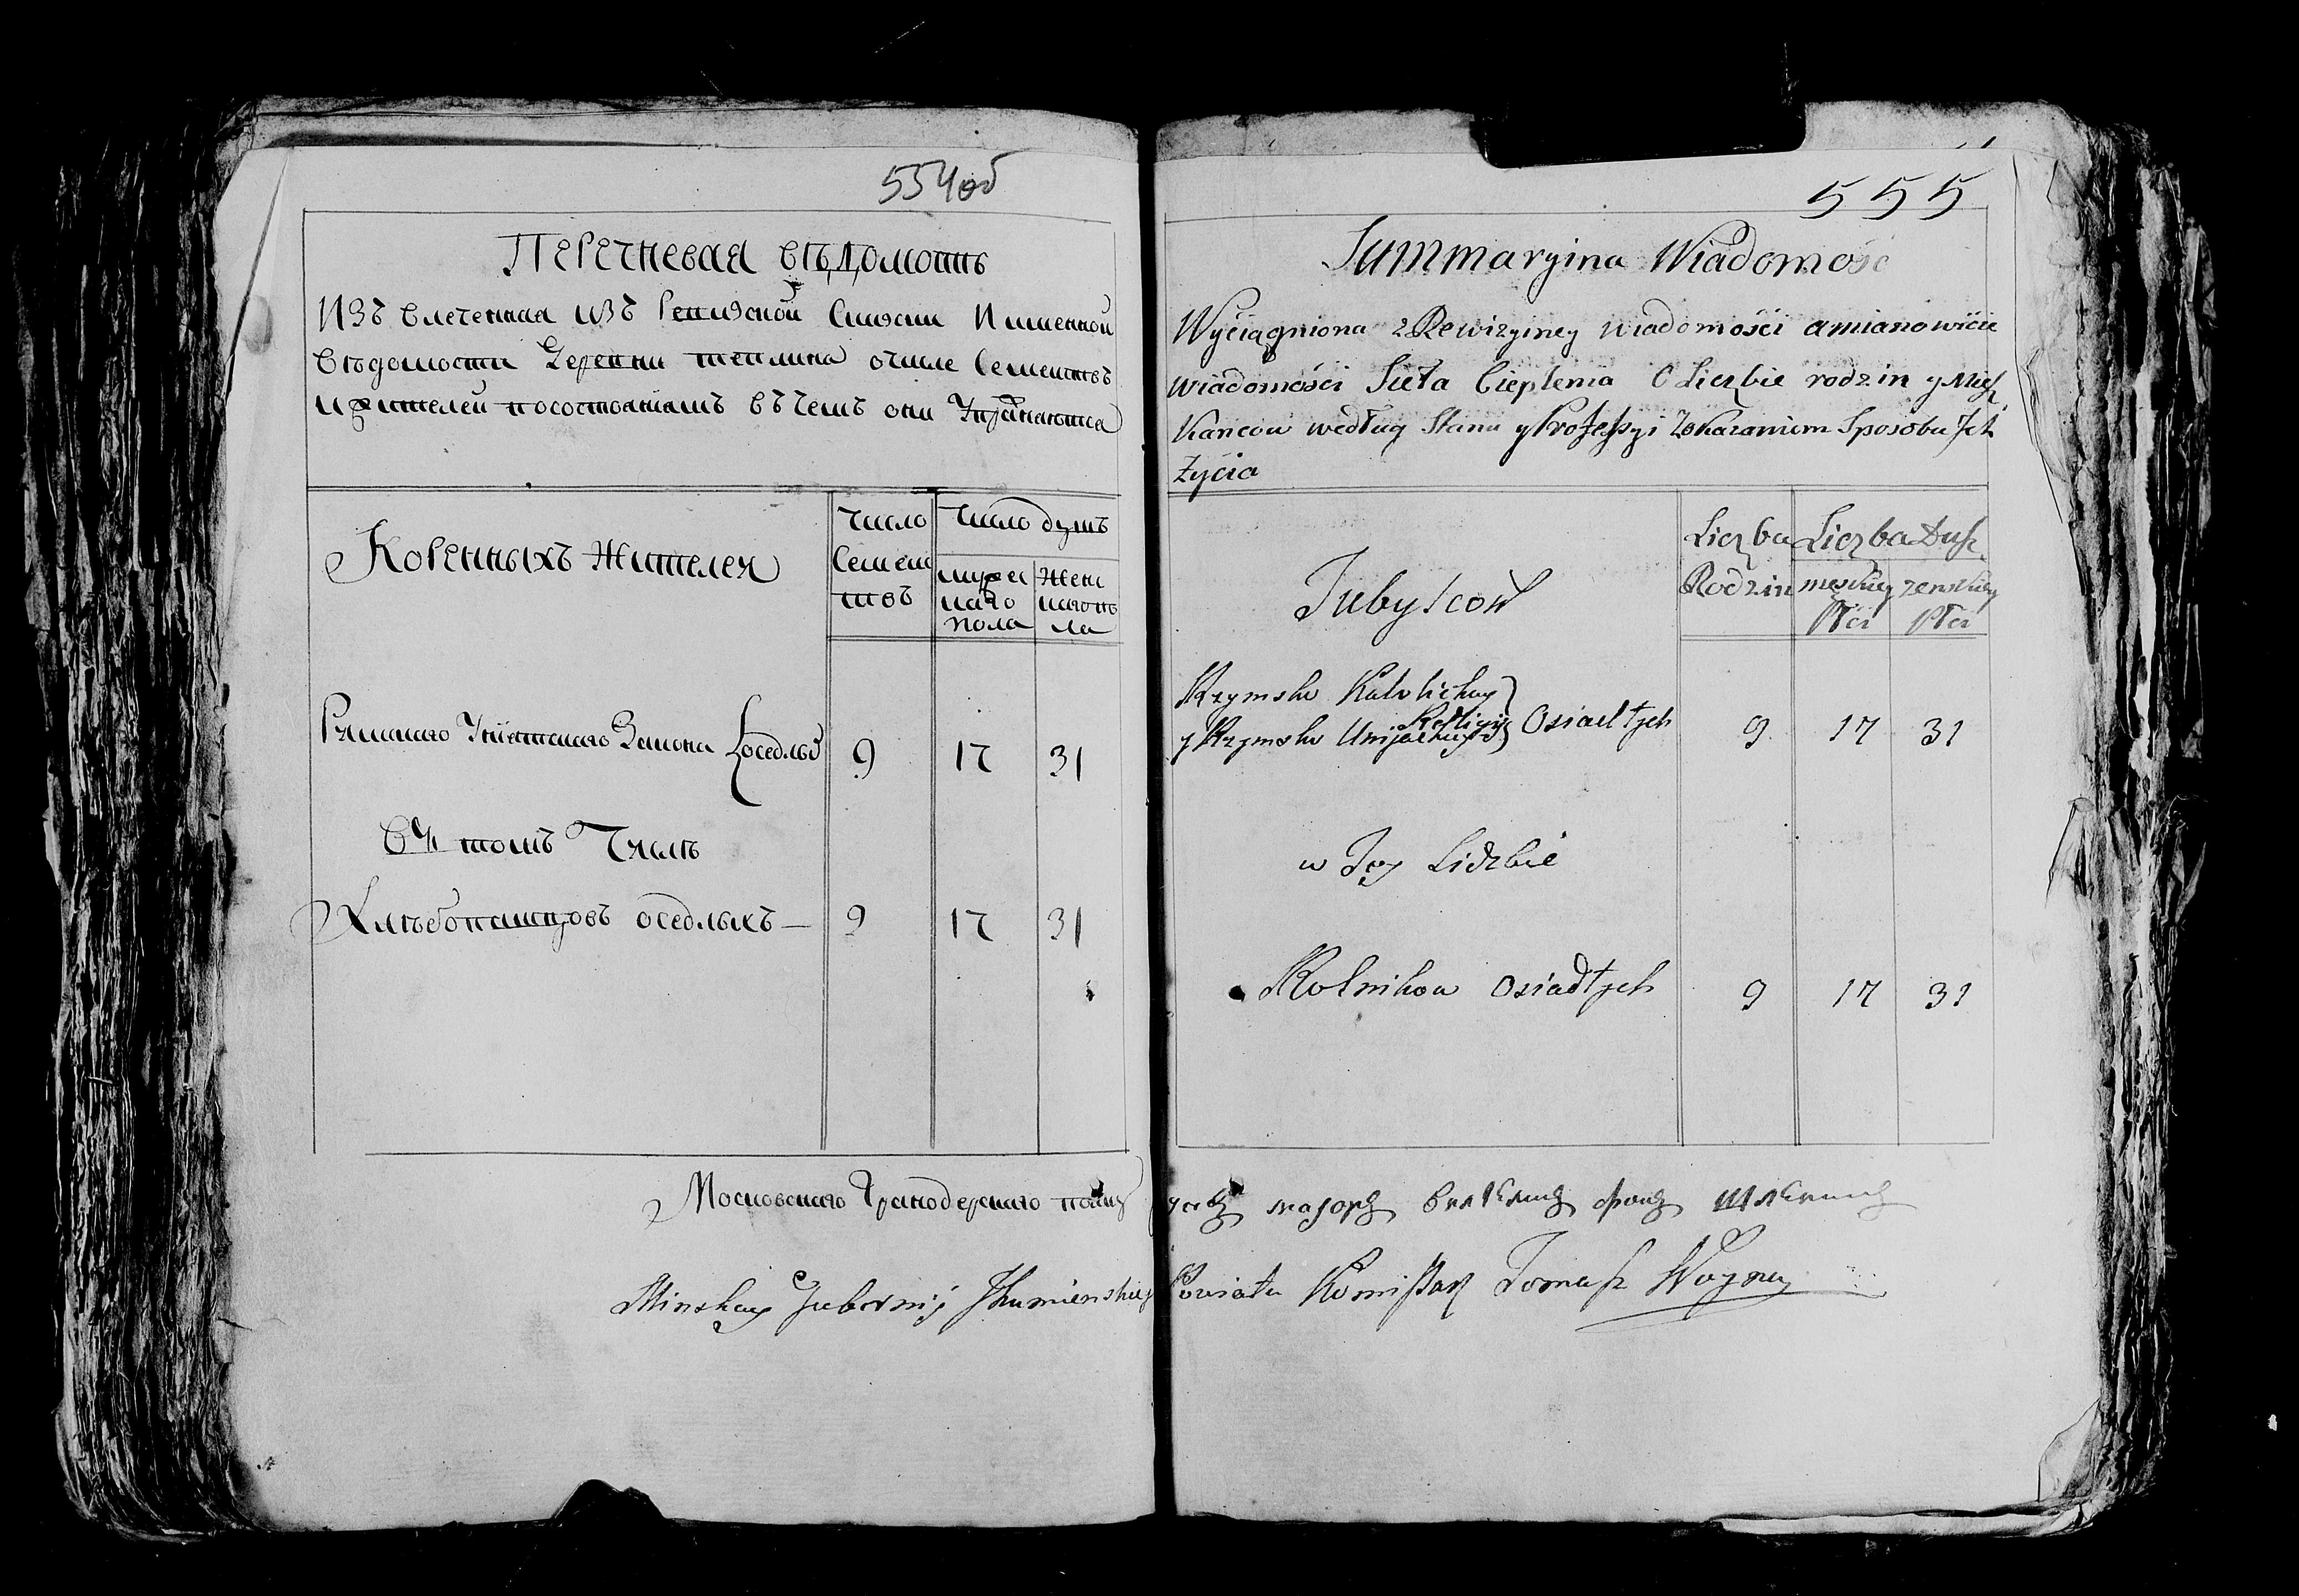 554об
Перечневая вѣдомость
Изъ влеченная изъ Ревизской Скаски Именной
вѣдомости Деревни теплина очисле Семействъ
ижителей посостояніямъ въ чемъ они Упражняются
Коренныхъ Жителей
число Семей ствъ
число душъ
мужеска го пола
женскаго по ла
Римского Униятского Закона оседлых 9 17 31
Въ томъ Числѣ
Хлѣбопашцовъ оседлыхъ — 9 17 31
555
Summaryina Wiadomość
Wyciągniona z Rewizyiney wiadomości a mianowicie
wiadomości Sieła Cieplenia O Liczbie rodzin y Miesz
kańcow według Stanu y Professyi Zokazaniem Sposobu Ich
życia
Tubylcow
Liczba Rodzin
Liczba Dusz
męskiey Płci
zenskiey Płci
Rzymsko Katolickey
y Rzymsko Uniackiey Religii Osiadłych 9 17 31
w Tey Liczbie
Rolnikow Osiadłych 9 17 31
Московского Гранодерского полку маіоръ фонъ
Minskey Gubernij Ihumienskiego Powiatu Komissarz Tomasz Woyney